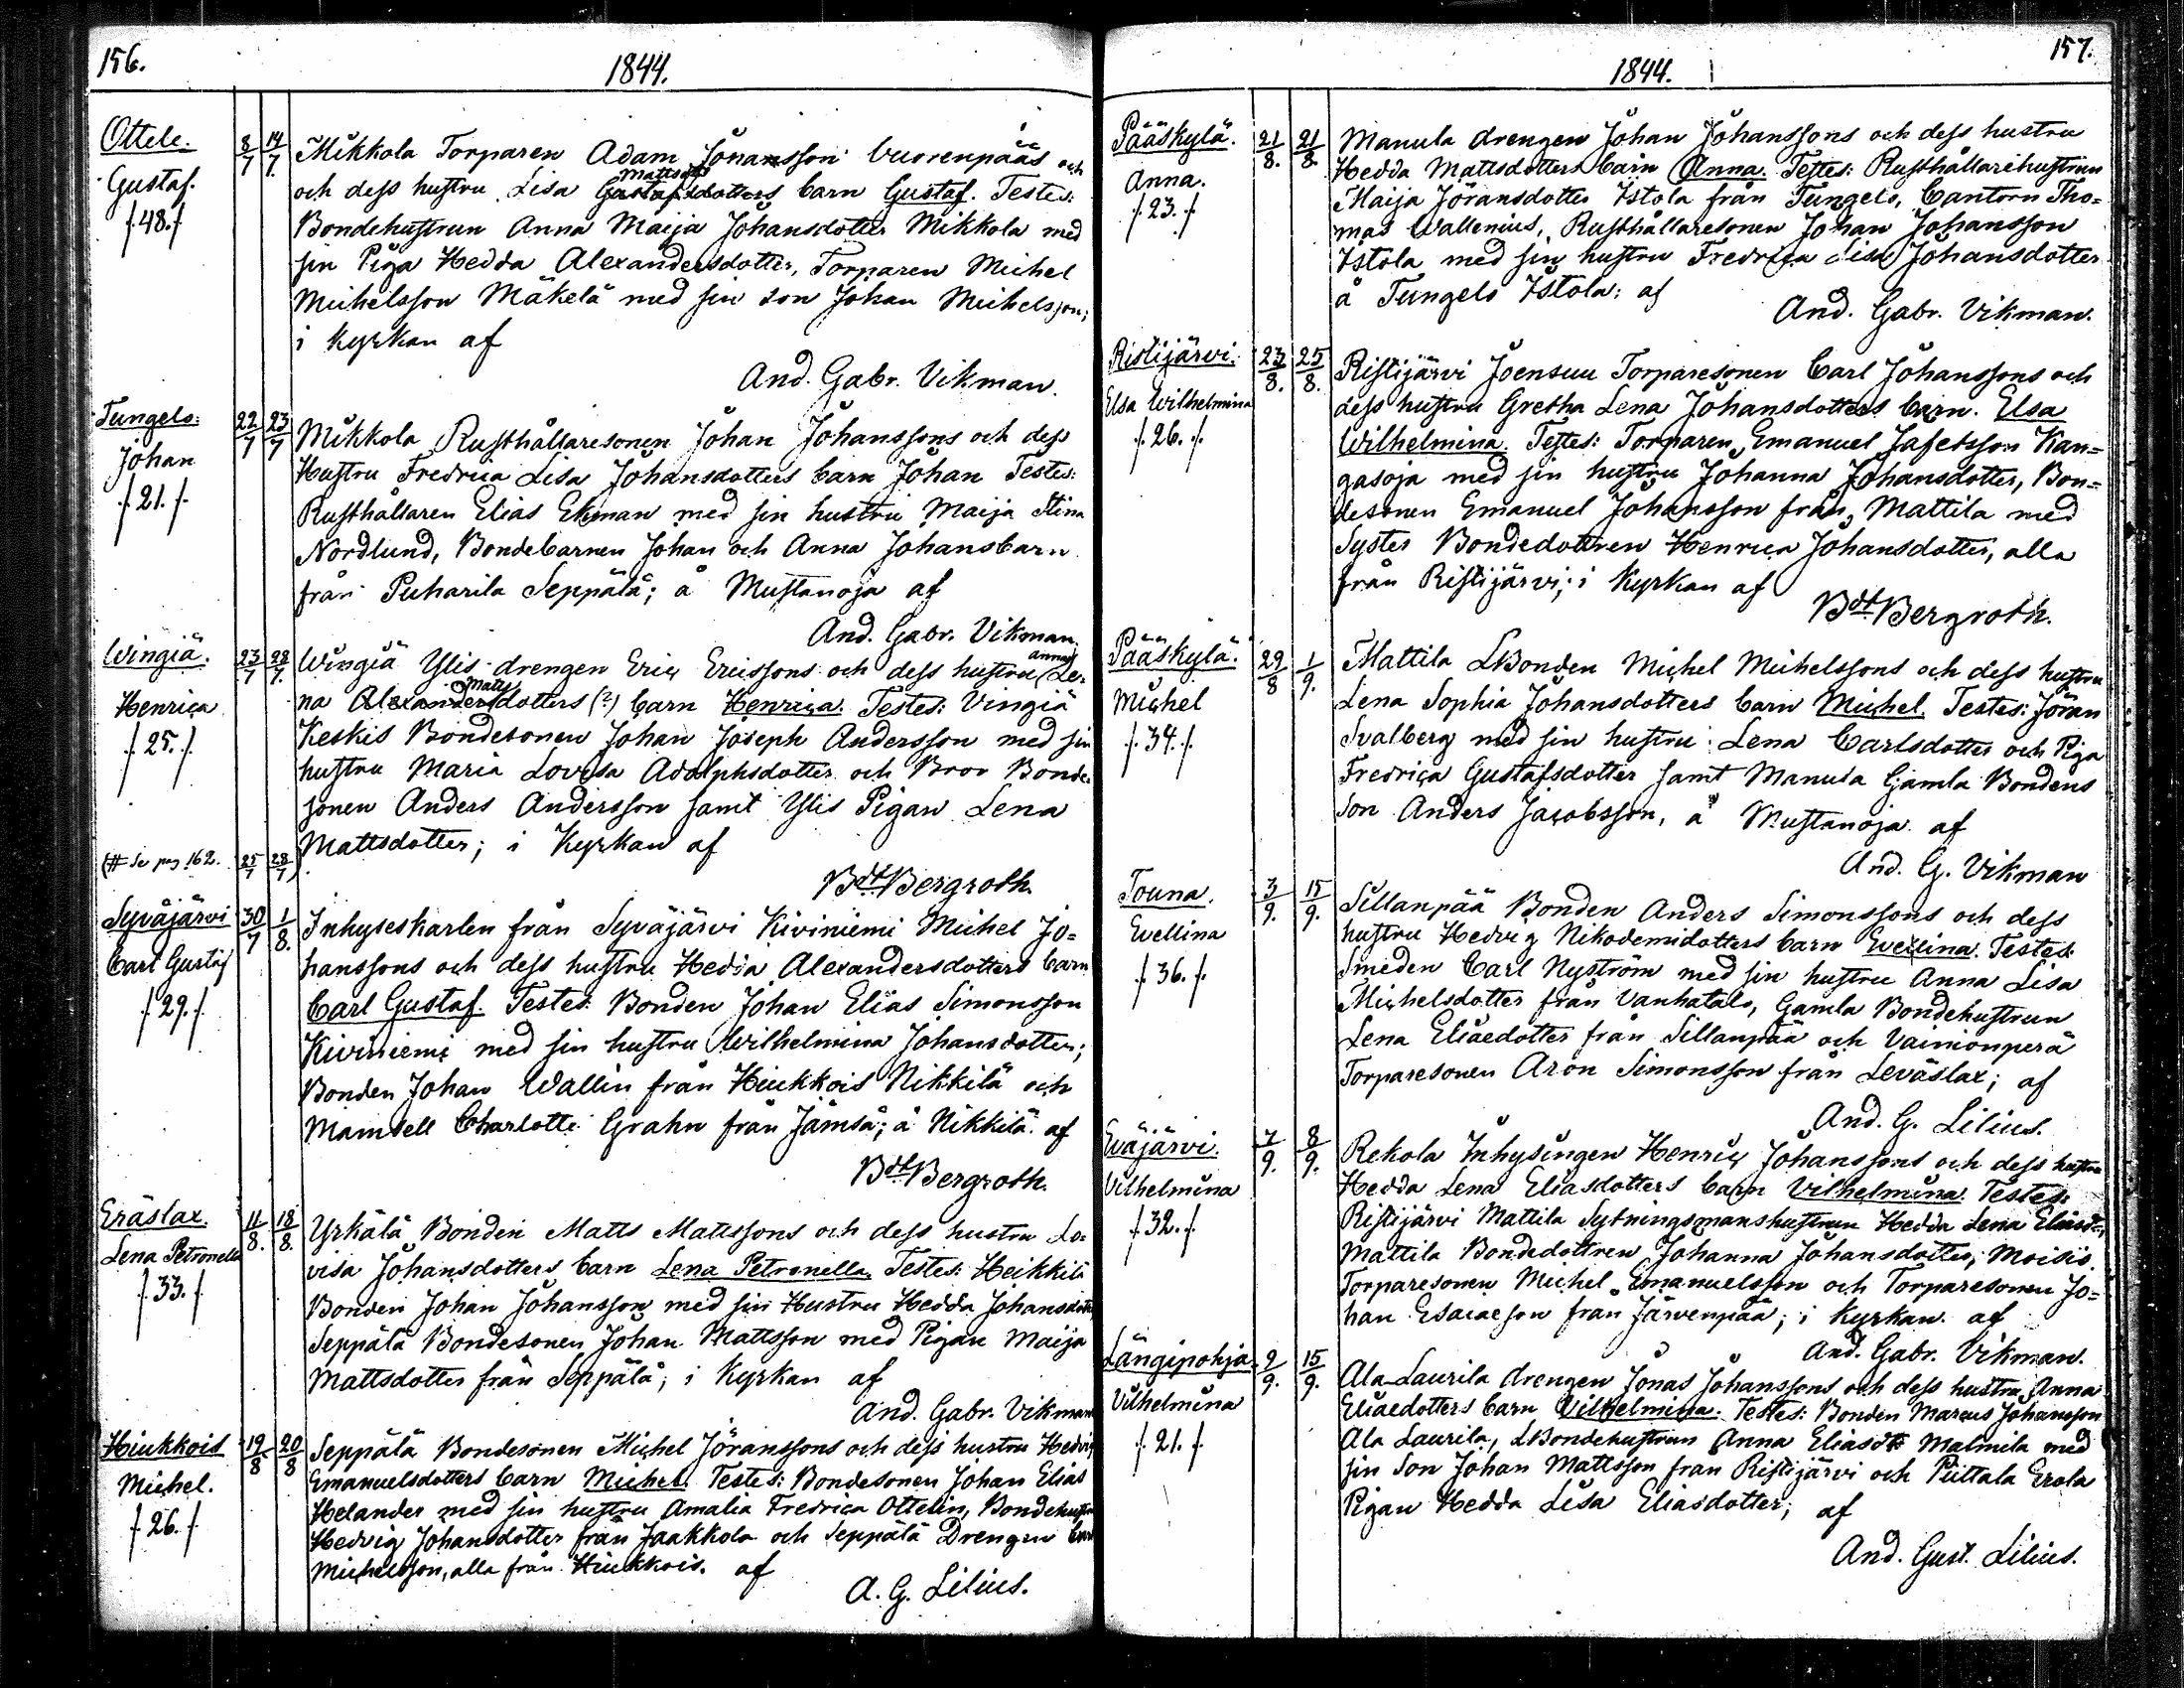 156.
1844.
Ottele.
Gustaf.
f. 48. f
8/7 14/7.
Mikkola Torparen Adam Jonansson Vuorenpääs och
och dess hustru Lisa Gustafsdotters Mattsdrs barn Gustaf. Testes:
Bondehustrun Anna Maija Johansdotter Mikkola med
sin Piga Hedda Alexandersdotter, Torparen Michel
Michelsson Mäkelä med sin son Johan Michelsson;
i kyrkan af
And. Gabr. Vikman.
Tungelo:
Johan
f. 21. f.
22/7 23/7
Mikkola Rusthållaresonen Johan Johanssons och dess
Hustru Fredrica Lisa Johansdotters barn Johan Testes:
Rusthållaren Elias Ekman med sin hustru Maija Stina
Nordlund, Bondebarnen Johan och Anna Johansbarn
från Puharila Seppälä; å Mustanoja af
And. Gabr. Vikman.
Wingiä.
Henrica
f. 25. f
23/7 28/7.
Wingiä Ylis-drengen Eric Ericssons och dess hustru (Le= anna)
na Alexandersdotters Matts (?) barn Henrica. Testes: Vingiä
Keskis Bondesonen Johan Joseph Andersson med sin
hustru Maria Lovisa Adolphsdotter och Bror Bonde=
sonen Anders Andersson samt Ylis Pigan Lena
Mattsdotter; i Kyrkan af
(# se pag 162. 25/7 28/7)
Bdt Bergroth.
Syväjärvi
Carl Gustaf
f. 29. f.
30/7 1/8.
Inhyseskarlen från Syväjärvi Kiviniemi Michel Jo=
hanssons och dess hustru Hedda Alexandersdotters barn
Carl Gustaf. Testes: Bonden Johan Elias Simonsson
Kiviniemi med sin hustru Wilhelmina Johansdotter;
Bonden Johan Wallin från Hiukkois Nikkilä och
Mamsell Charlotte Grahn från Jämsä; å Nikkilä af
Bdt Bergroth.
Eräslax.
Lena Petronella
f. 33. f
11/8. 18/8.
Yrkälä Bonden Matts Mattssons och dess hustru Lo=
visa Johansdotters barn Lena Petronella. Testes: Heikkilä
Bonden Johan Johansson med sin Hustru Hedda Johansdotter
Seppälä Bondesonen Johan Mattsson med Pigan Maija
Mattsdotter från Seppälä; i Kyrkan af
And. Gabr. Vikman
Hiukkois
Michel.
f. 26. f
19/8 20/8
Seppälä Bondesonen Michel Jöranssons och dess hustru Hedvig
Emanuelsdotters barn Michel. Testes: Bondesonen Johan Elias
Helander med sin hustru Amalia Fredrica Ottelin, Bondehustru
Hedvig Johansdotter från Jaakkola och Seppälä Drengen Carl
Michelsson, alla från Hiukkois. af
A. G. Lilius.
157.
1844.
Pääskylä.
Anna.
f. 23. f
21/8. 21/8.
Manula drengen Johan Johanssons och dess hustru
Hedda Mattsdotters barn Anna. Testes: Rusthållarehustrun
Maija Jöransdotter Istola från Tungelo, Cantorn Tho=
mas Wallenius, Rusthållaresonen Johan Johansson
Istola med sin hustru Fredrica Lisa Johansdotter
å Tungelo Istola; af
And. Gabr. Vikman.
Ristijärvi.
Elsa Wilhelmina
f. 26. f.
23/8. 25/8.
Ristijärvi Joensuu Torparesonen Carl Johanssons och
dess hustru Gretha Lena Johansdotters barn. Elsa
Wilhelmina. Testes: Torparen Emanuel Jafetsson Kan=
gasoja med sin hustru Johanna Johansdotter, Bon=
desonen Emanuel Johansson från Mattila med
Syster Bondedottren Henrica Johansdotter, alla
från Ristijärvi; i Kyrkan af
Bdt Bergroth.
Pääskylä.
Michel
f. 34. f.
29/8 1/9.
Mattila LBonden Michel Michelssons och dess hustru
Lena Sophia Johansdotters barn Michel. Testes: Jöran
Svalberg med sin hustru Lena Carlsdotter och Piga
Fredrica Gustafsdotter samt Manula Gamla Bondens
Son Anders Jacobsson, å Mustanoja af
And. G. Vikman
Touna.
Evellina
f. 36. f.
3/9. 15/9.
Sillanpää Bonden Anders Simonssons och dess
hustru Hedvig Nikodemidotters barn Evelina. Testes:
Smeden Carl Nyström med sin hustru Anna Lisa
Michelsdotter från Vanhatalo, Gamla Bondehustrun
Lena Eliaedotter från Sillanpää och Vainionperä
Torparesonen Aron Simonsson från Leväslax; af
And. G. Lilius.
Eväjärvi.
Vilhelmina
f. 32. f.
7/9. 8/9.
Rekola Inhysingen Henric Johanssons och dess hustru
Hedda Lena Eliasdotters barn Vilhelmina. Testes:
Ristijärvi Mattila Sytningsmanshustrun Hedda Lena Eliasdr,
Mattila Bondedottren Johanna Johansdotter, Moisio
Torparesonen Michel Emanuelsson och Torparesonen Jo=
han Esaiaeson från Järvenpää; i kyrkan af
And. Gabr. Vikman.
Längipohja
Vilhelmina
f. 21. f.
9/9. 15/9.
Ala-Laurila drengen Jonas Johanssons och dess hustru Anna
Eliaedotters barn Vilhelmina. Testes: Bonden Marcus Johansson
Ala Laurila, LBondehustrun Anna Eliasdtr Malmila med
sin Son Johan Mattsson från Ristijärvi och Piittala Erola
Pigan Hedda Lisa Eliasdotter; af
And. Gust. Lilius.